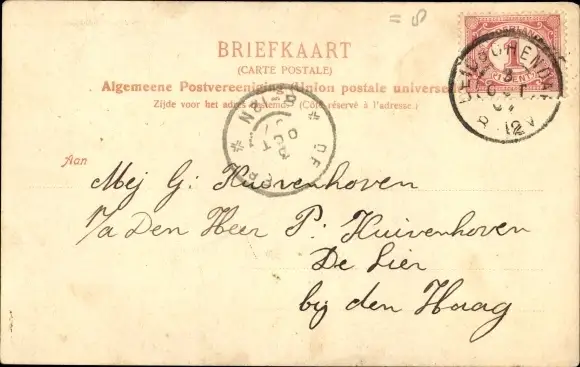 BRIEFKAART
(CARTE POSTALE)
Algemeene Postvereeniging (Union postale universelle)
Zijde voor het adres bestemd. (Côté réservé à l'adresse.)
1
CENT
12
Aan
Mej G: Huivenhoven
P/a Den Heer P. Huivenhoven
De Lier
bij den Haag